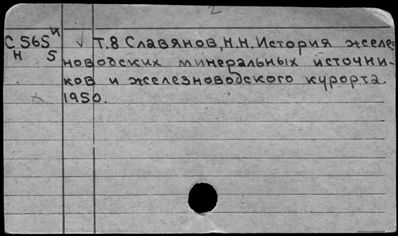 2
С 565 и V Т.8 Славянов, Н.Н. История желез-
Н 5 новодских минеральных источни-
ков и железноводского курорта.
1950.